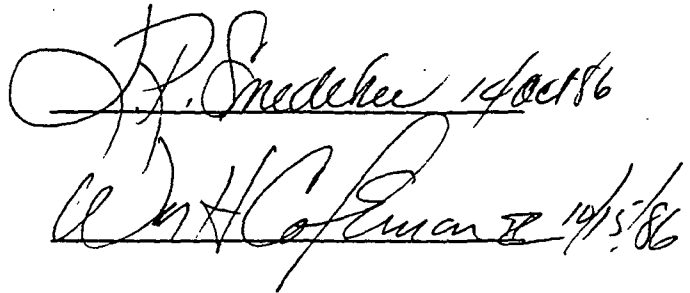 J.P. Snedeker 14/Oct 86
Wm H Coleman II 10/15/86